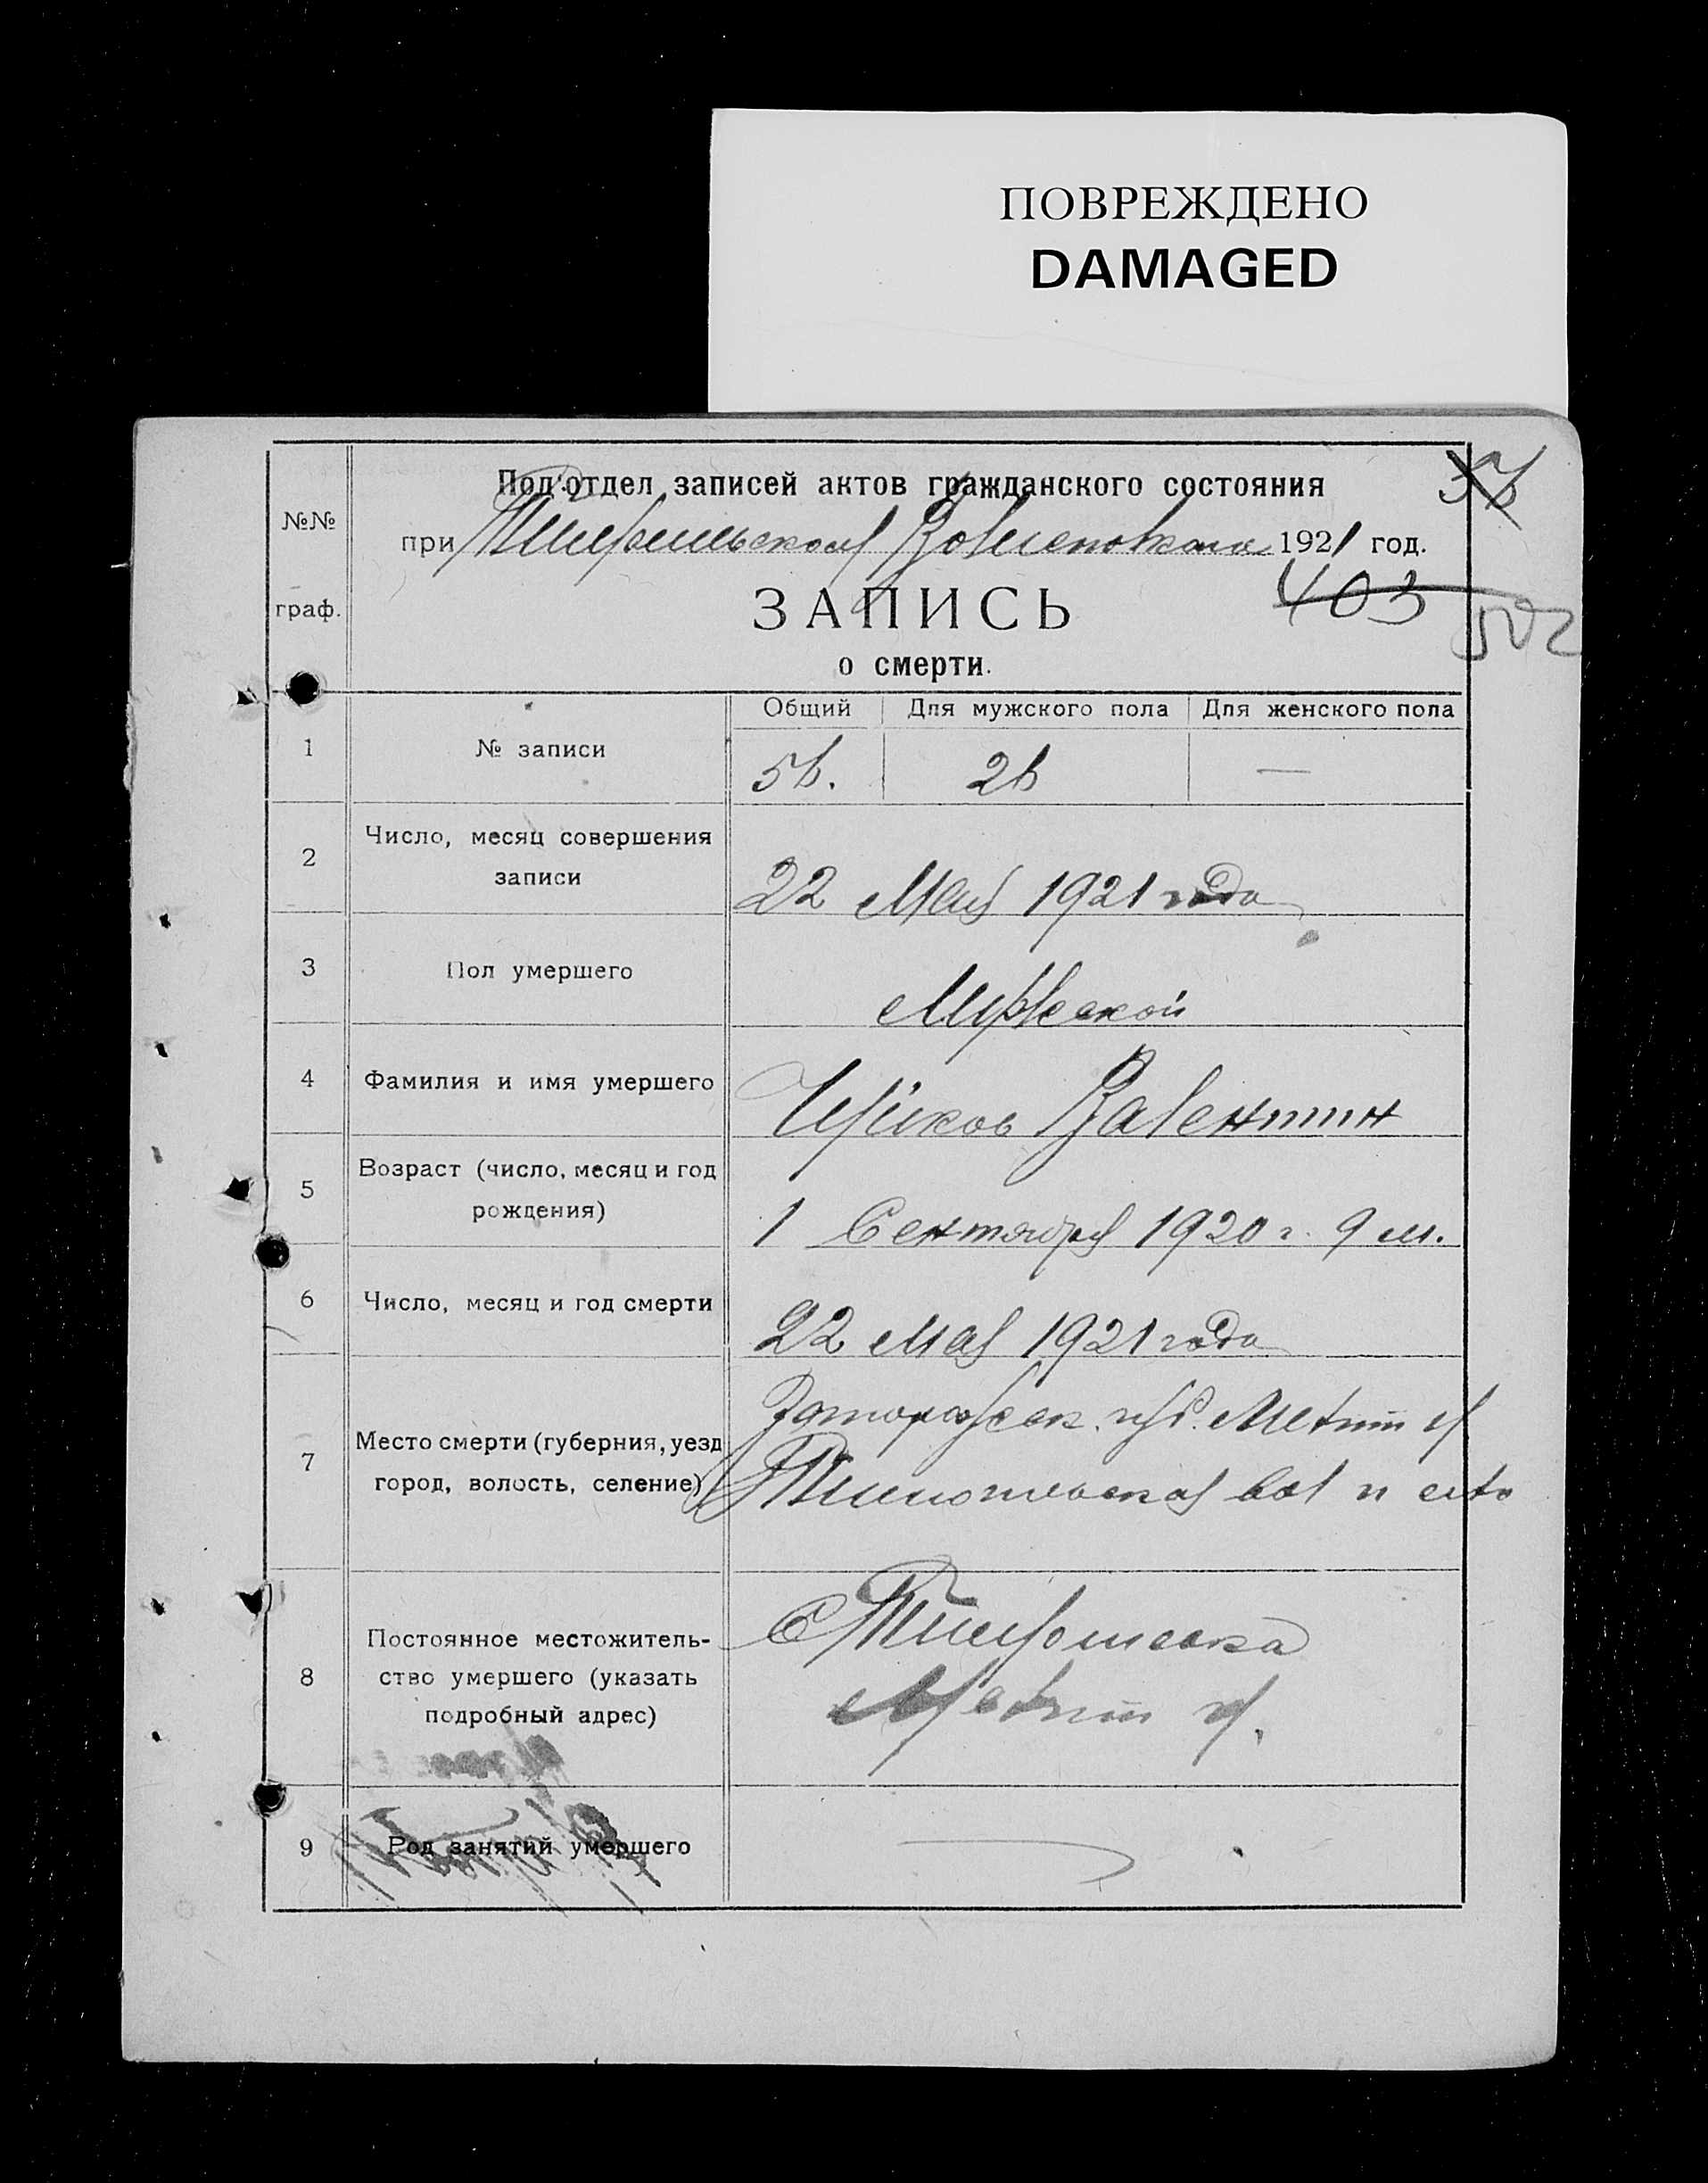 ПОВРЕЖДЕНО
DAMAGED
Под'отдел записей актов гражданского состояния
№№
при 1921 год.
403
502
граф.
ЗАПИСЬ
о смерти.
Общий Для мужского пола Для женского пола
1 № записи 56. 26 —
2 Число, месяц совершения
записи
22 Мая 1921 года
3 Пол умершего
Мужской
4 Фамилия и имя умершего
Валентин
5 Возраст (число, месяц и год
рождения)
1 Сентября 1920 г. 9 м.
6 Число, месяц и год смерти
22 Мая 1921 года
7 Место смерти (губерния, уезд
город, волость, селение)
Запорожск. губ. Мелит у
вол и село
8 Постоянное местожитель-
ство умершего (указать
подробный адрес)
С
Мелит у.
9 Род занятий умершего